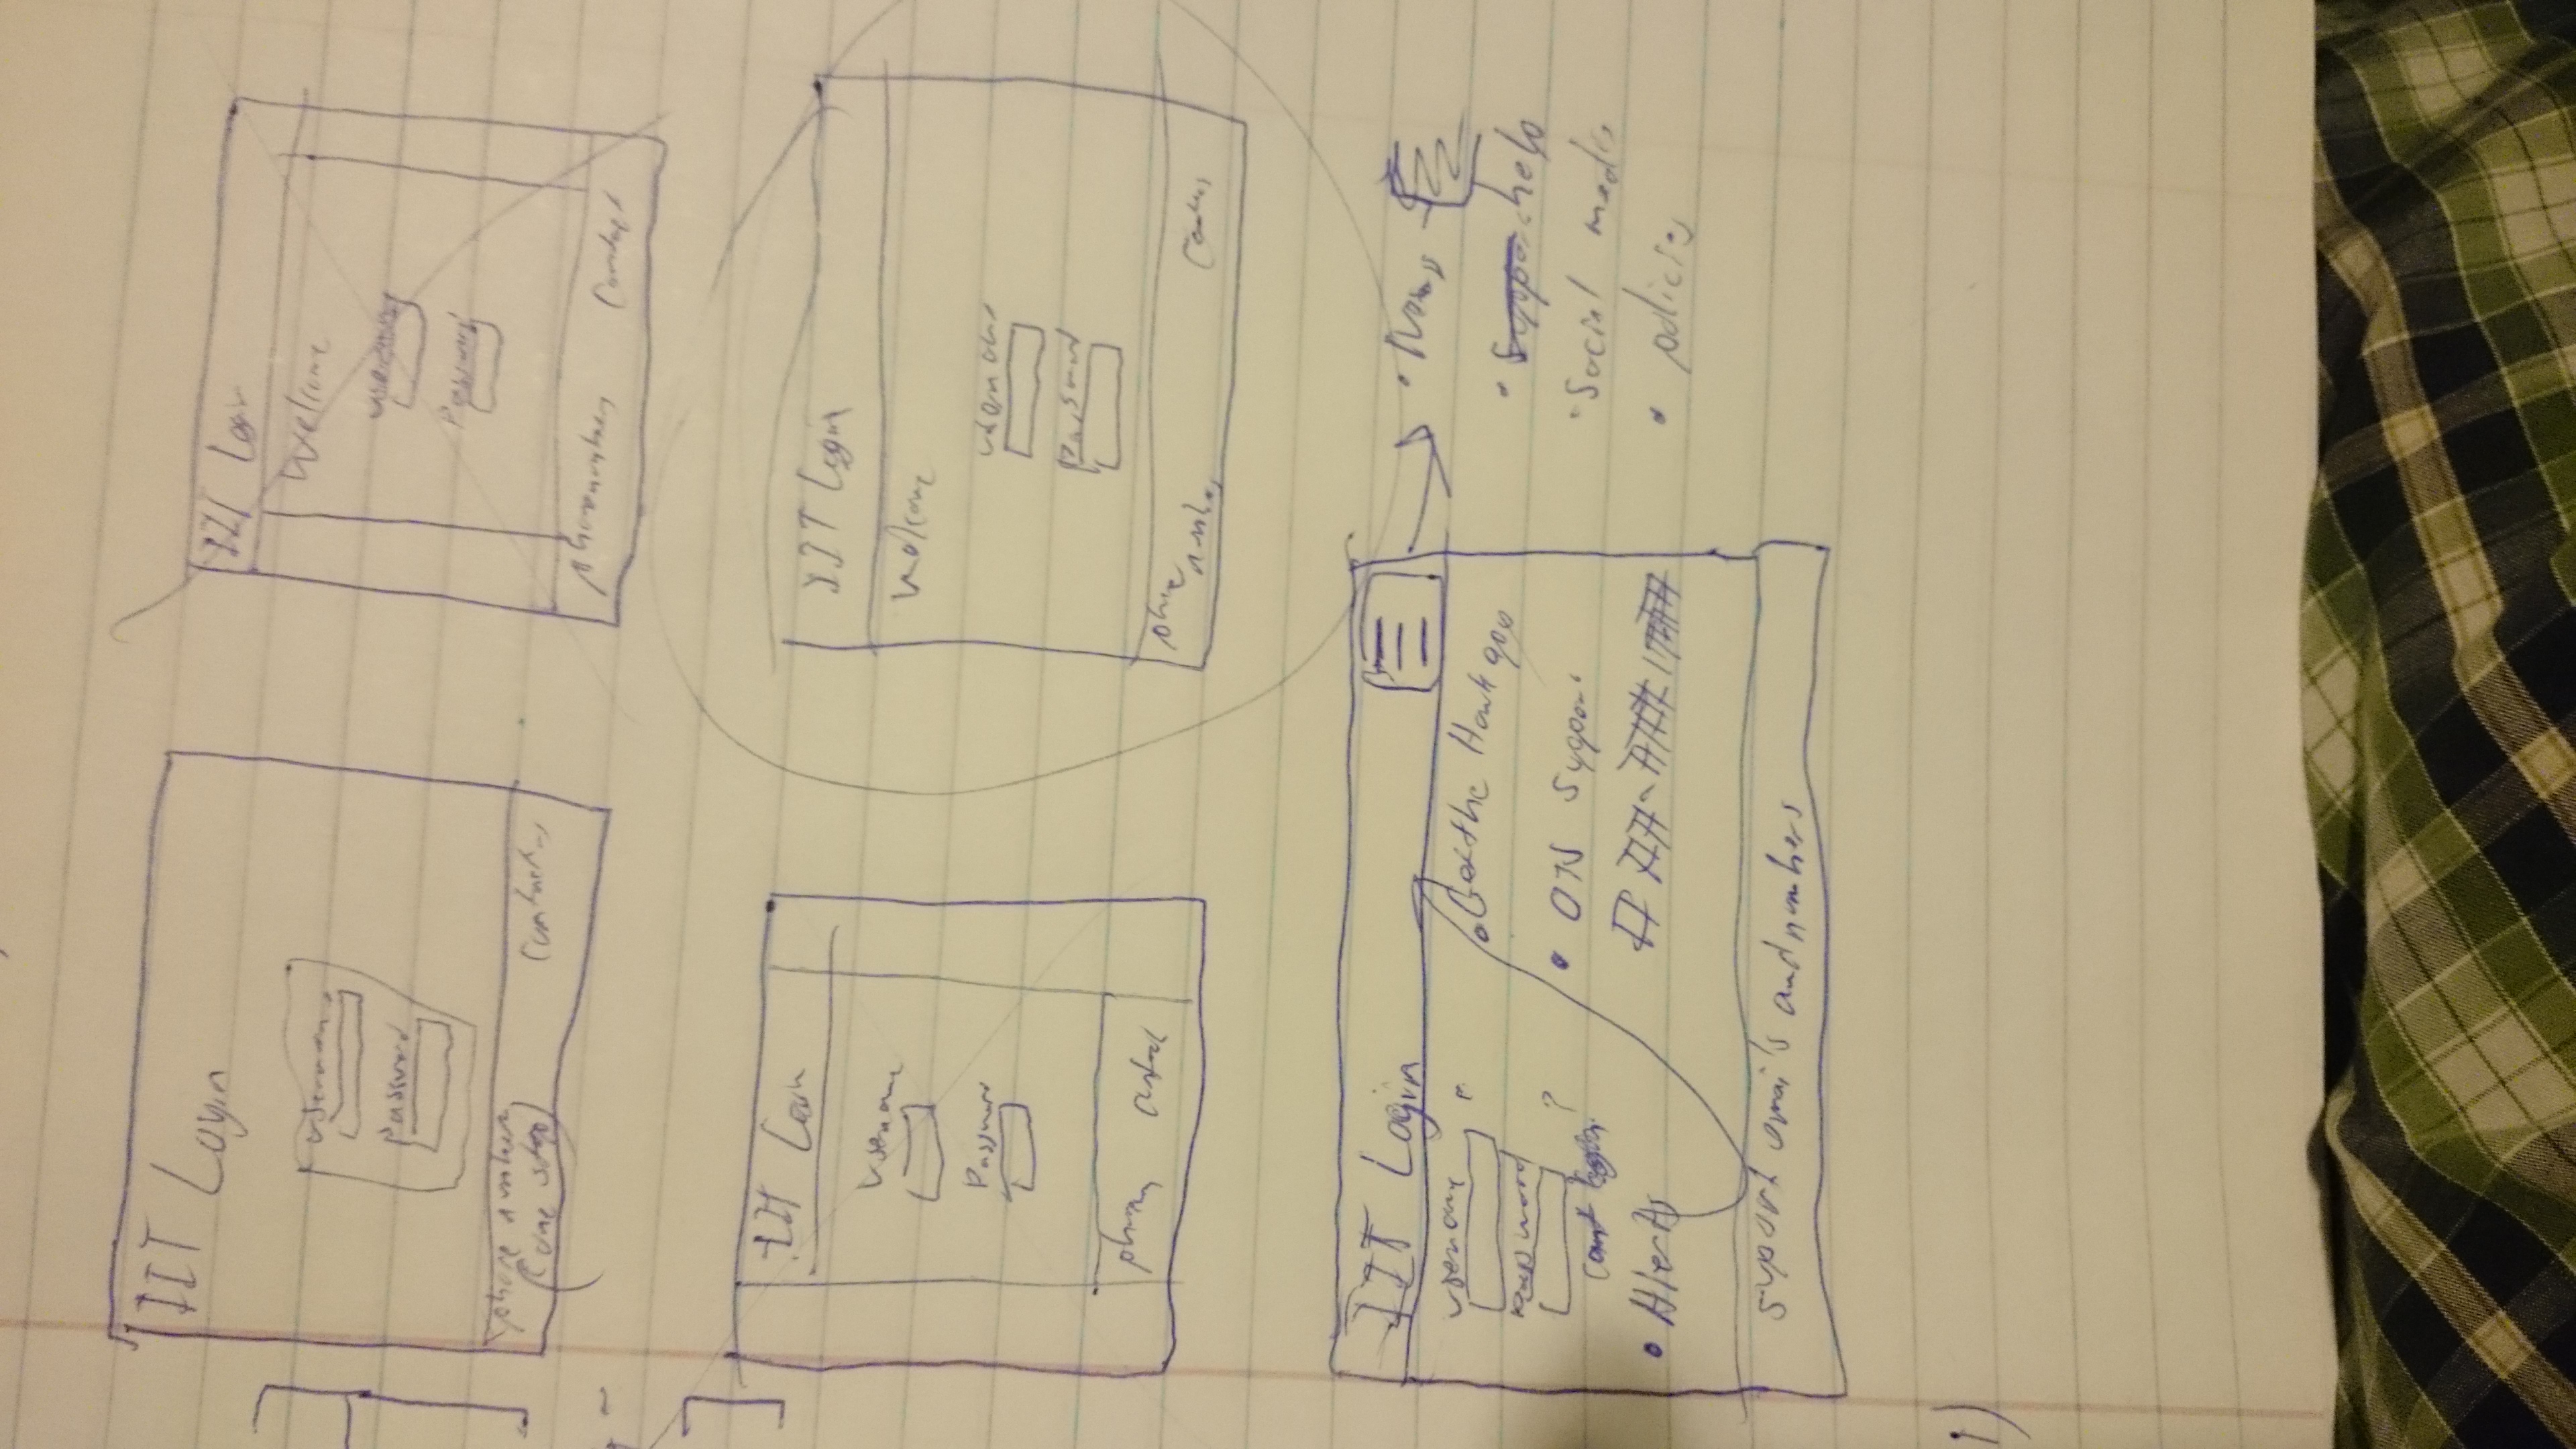 IIT Login
username
password
phone number
(one stop)
Contact us
IIT Login
Welcome
username
Password
phone number
Contact
IIT Login
Username
Password
phone
contact
IIT Login
Welcome
username
Password
phone
number
IIT Login
username
?
password
?
cant login
• Alerts
• Get the Hawk app
• OTS Support
# ###-###-####
support emails and numbers
• News
• help
• Social media
• policies